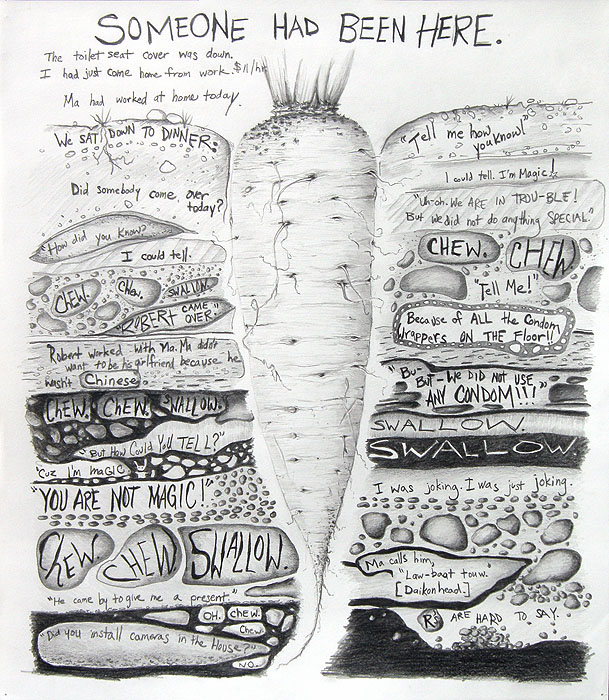 SOMEONE HAD BEEN HERE.
The toilet seat cover was down.
I had just come home from work. $11/hr
Ma had worked at home today.
WE SAT DOWN TO DINNER:
Did somebody come over
today?
"How did you know?"
I could tell.
CHEW. Chew. SWALLOW.
"ROBERT CAME
OVER."
Robert worked with Ma. Ma didn't
want to be his girlfriend because he
wasn't Chinese.
CHEW. CHEW. SWALLOW.
"But How Could You TELL?"
"Cuz I'm MAGIC
"YOU ARE NOT MAGIC!"
CHEW CHEW SWALLOW.
"He came by to give me a present."
OH. CHEW.
Chew.
"Did you install cameras in the House?"
NO.
"Tell me how
you know!"
I could tell. I'm Magic!
"Uh-oh. We ARE IN TROU-BLE!
But we did not do anything SPECIAL"
CHEW. CHEW
"Tell Me!"
Because of ALL the Condom
Wrappers ON THE Floor!!
"Bu-
But-We DID NOT USE
ANY CONDOM!!!"
SWALLOW.
SWALLOW.
I was joking. I was just joking.
Ma calls him,
"Law-baat touw."
[Daikonhead.]
R's ARE HARD TO SAY.